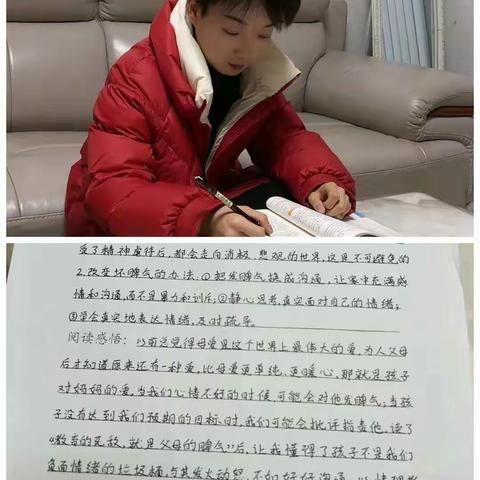 受了精神虐待后，都会走向消极、悲观的世界，这是不可避免的
2.改变坏脾气的办法：①把发脾气换成沟通，让家中充满感
情和沟通，而不是暴力和训斥；②静心思考，真实面对自己的情绪；
③学会真实地表达情绪，及时疏导。
阅读感悟：以前总觉得母爱是这个世界上最伟大的爱，为人父母
后才知道原来还有一种爱，比母爱更单纯、更暖心，那就是孩子
对妈妈的爱，当我们心情不好的时候，可能会对他发脾气；当孩
子没有达到我们预期的目标时，我们可能会批评指责他，读了
“教育的死敌，就是父母的脾气”后，让我懂得了孩子不是我们
负面情绪的垃圾桶，与其发火动怒，不如好好沟通，以